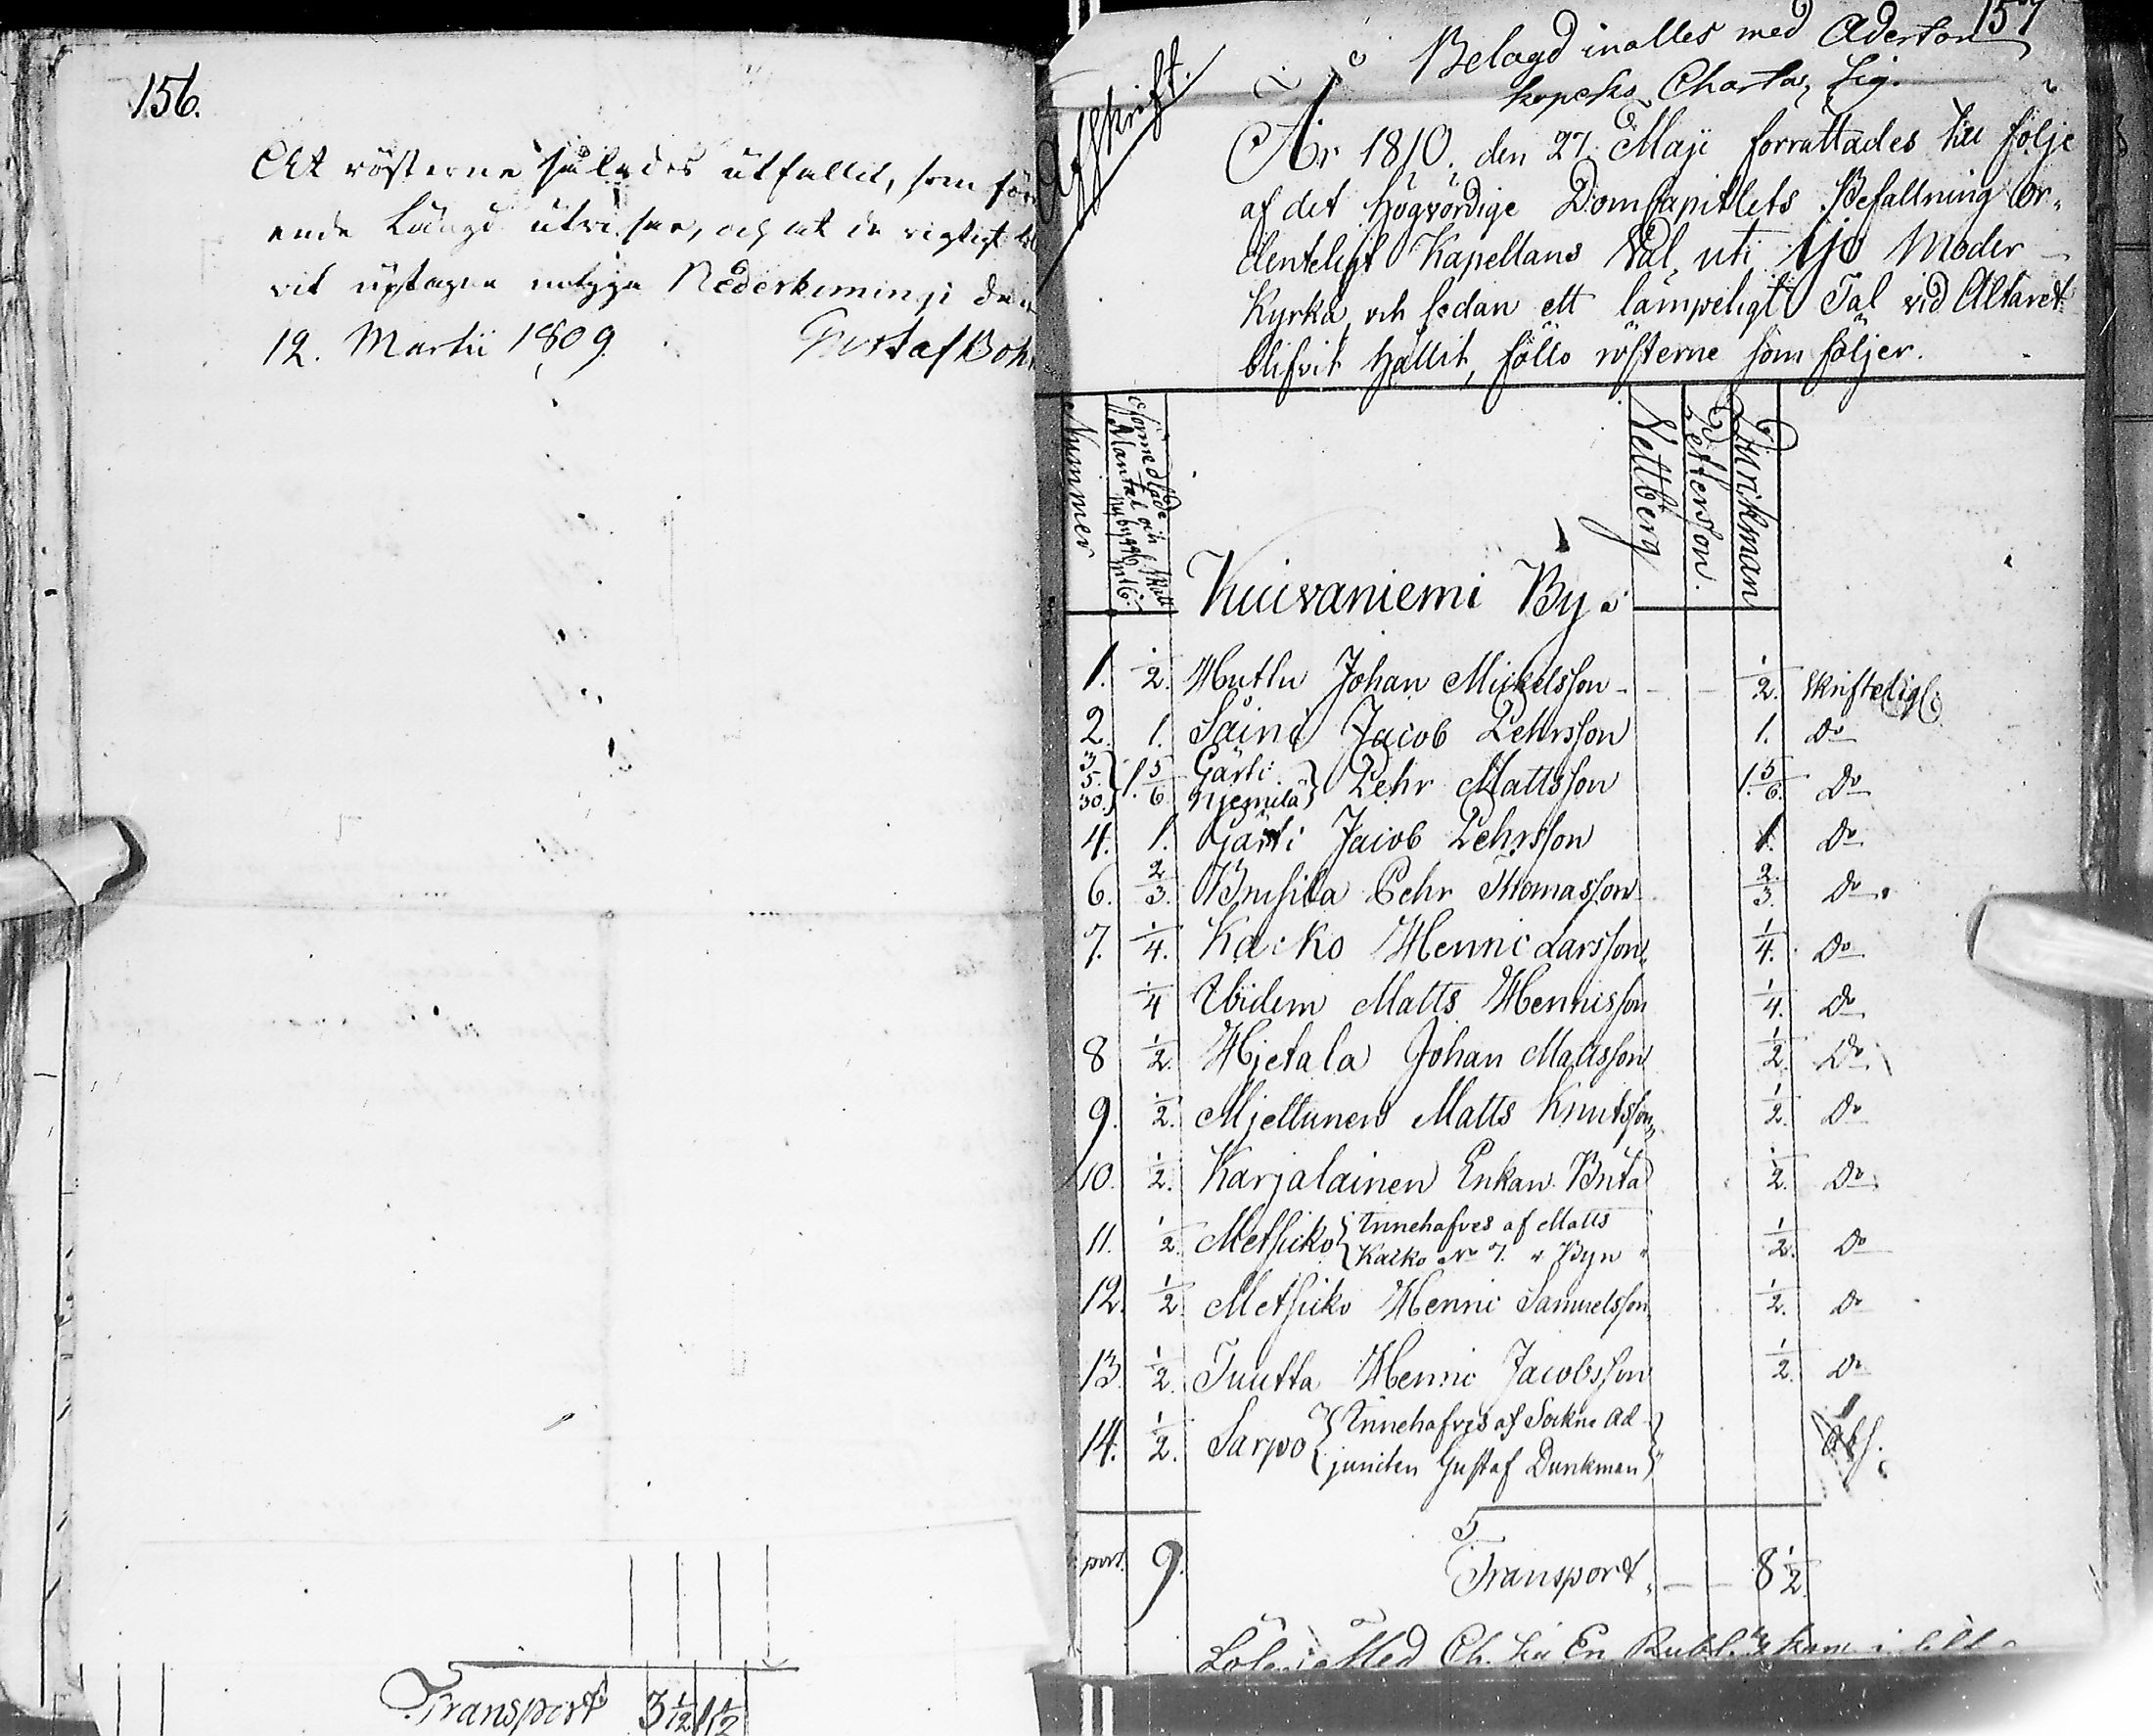 156.
At rösterne således utfallit, som för
ende Längd utviser, och at de rigtigt bli
vit uptagne intyga Nederkiminge den
12. Martii 1809. Gustaf Boh
157
Belagd inalles med Aderton
kopeks Charta, Sig.
Afskrift.
År 1810. den 27 Maji förrättades till följe
af det Högvördige DomCapitlets Befallning or-
denteligt Kapellans Val uti Ijo Moder-
Kyrka, och sedan ett lämpeligt Tal vid Altaret
blifvit hållit, föllo rösterne som följer.
Nummer
Oförmedlade Mantal och Skatt nybygge
Nettberg
Pettersson.
Dunckman
Kuivaniemi By.
1. 1/2. Huttu Johan Mickelsson - - 1/2. Skrifteligt
2. 1. Säini Jacob Pehrsson 1. Do
3. 5. 30. } 1. 5/6 Gärti Njemilä } Pehr Mattsson 1. 5/6. Do
4. 1. Gärti Jacob Pehrsson 1. Do
6. 2/3. Brusila Pehr Thomasson 2/3. Do
7. 1/4. Kaiko Henric Larsson 1/4. Do
1/4 Ibidem Matts Henricsson 1/4. Do
8 1/2. Hjetala Johan Mattsson 1/2. Do
9. 1/2. Mjettunen Matts Knutsson 1/2. Do
10. 1/2. Karjalainen Enkan Brita 1/2. Do
11. 1/2. Metsicko { Innehafves af Matts
Kaiko No 7. " Byn " 1/2. Do
12. 1/2. Metsicko Henric Samuelsson 1/2. Do
13. 1/2. Tuutta Henric Jacobsson 1/2. Do
14. 1/2. Sarpo { Innehafves af Sockne Ad-
juncten Gustaf Dunkman }
port. 9. Transport - - 8 1/2.
Med Ch. Sig. En Rubl.
Transport 3 1/2 1 1/2